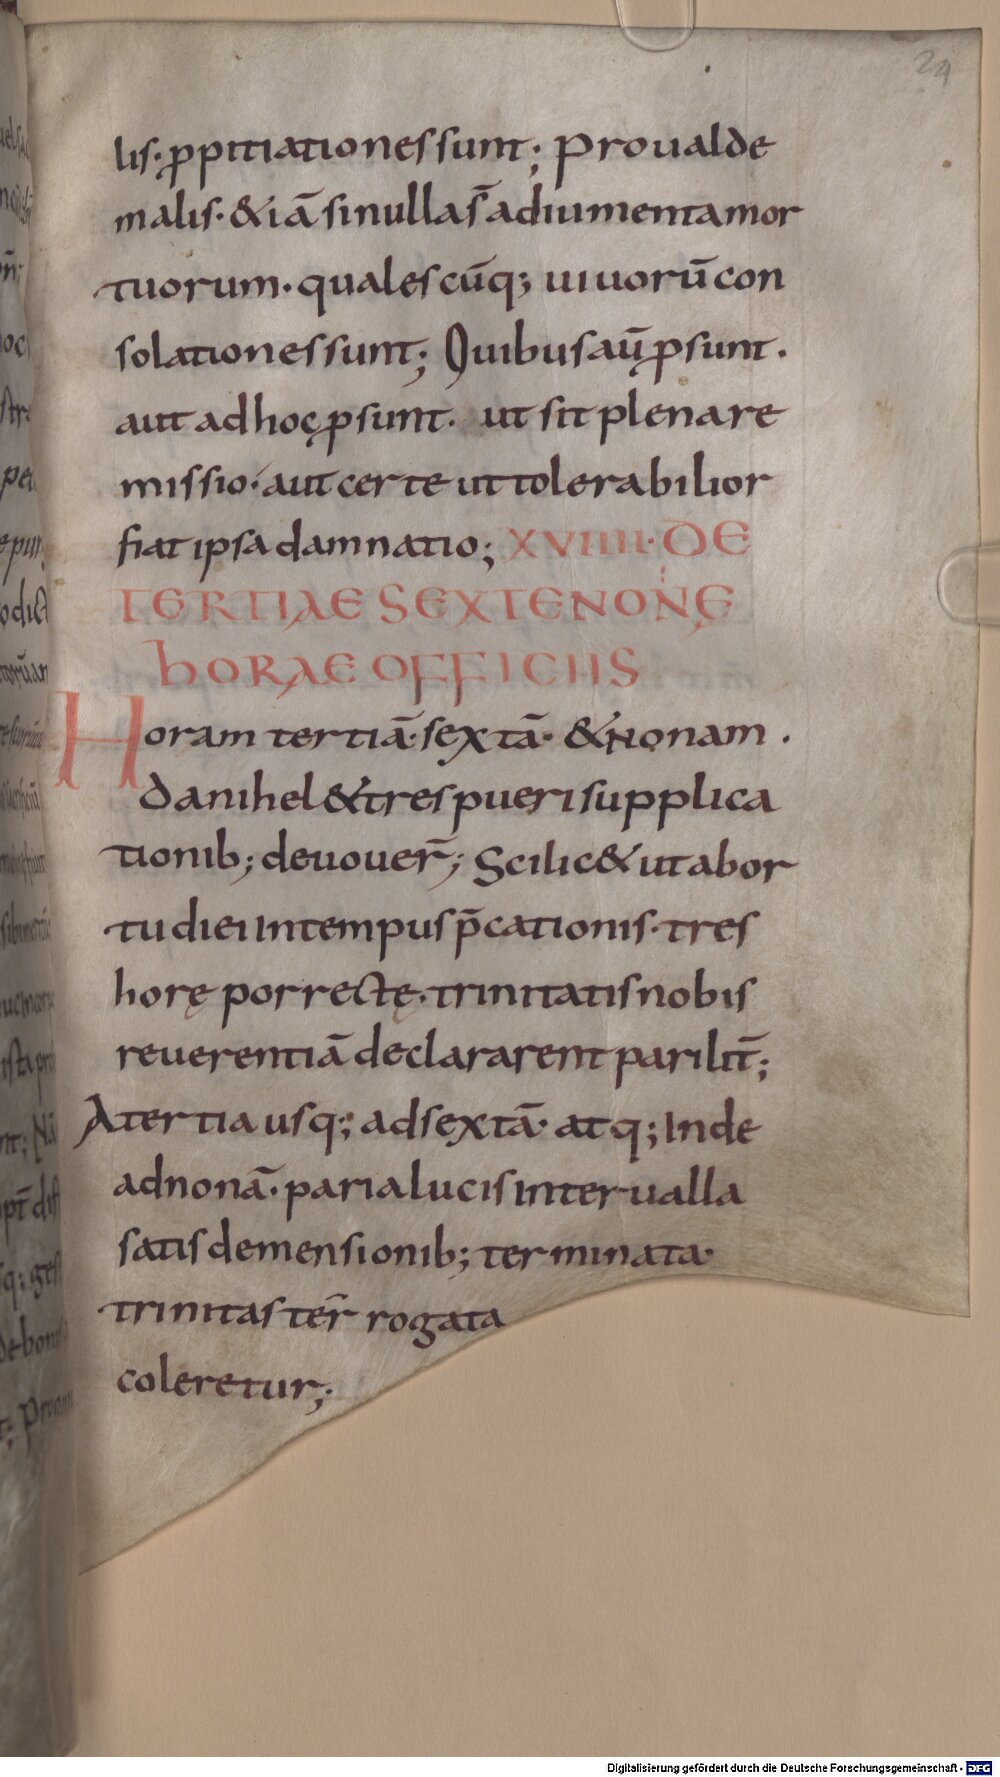 24
lis· ꝓpitiationes sunt; Pro ualde
malis· & iā si nulla s̄ adiumenta mor
tuorum· qualescūq; uiuorū con
solationes sunt; Quibus aū ꝓsunt·
aut ad hoc ꝓsunt· ut sit plena re
missio· aut certe ut tolerabilior
fiat ipsa damnatio; XVIIII· DE
TERTIAE SEXTE NONĘ
HORAE OFFICIIS
Horam tertiā· sextā· & nonam·
danihel & tres pueri supplica
tionib; deuouer̄; Scilic& ut ab or
tu diei in tempus p̄cationis· tres
horę porrectę· trinitatis nobis
reuerentiā declararent parilit̄;
A tertia usq; ad sextā· atq; Inde
ad nonā· paria lucis interualla
satis demensionib; terminata·
trinitas ter̄ rogata
coleretur;
Digitalisierung gefördert durch die Deutsche Forschungsgemeinschaft - DFG